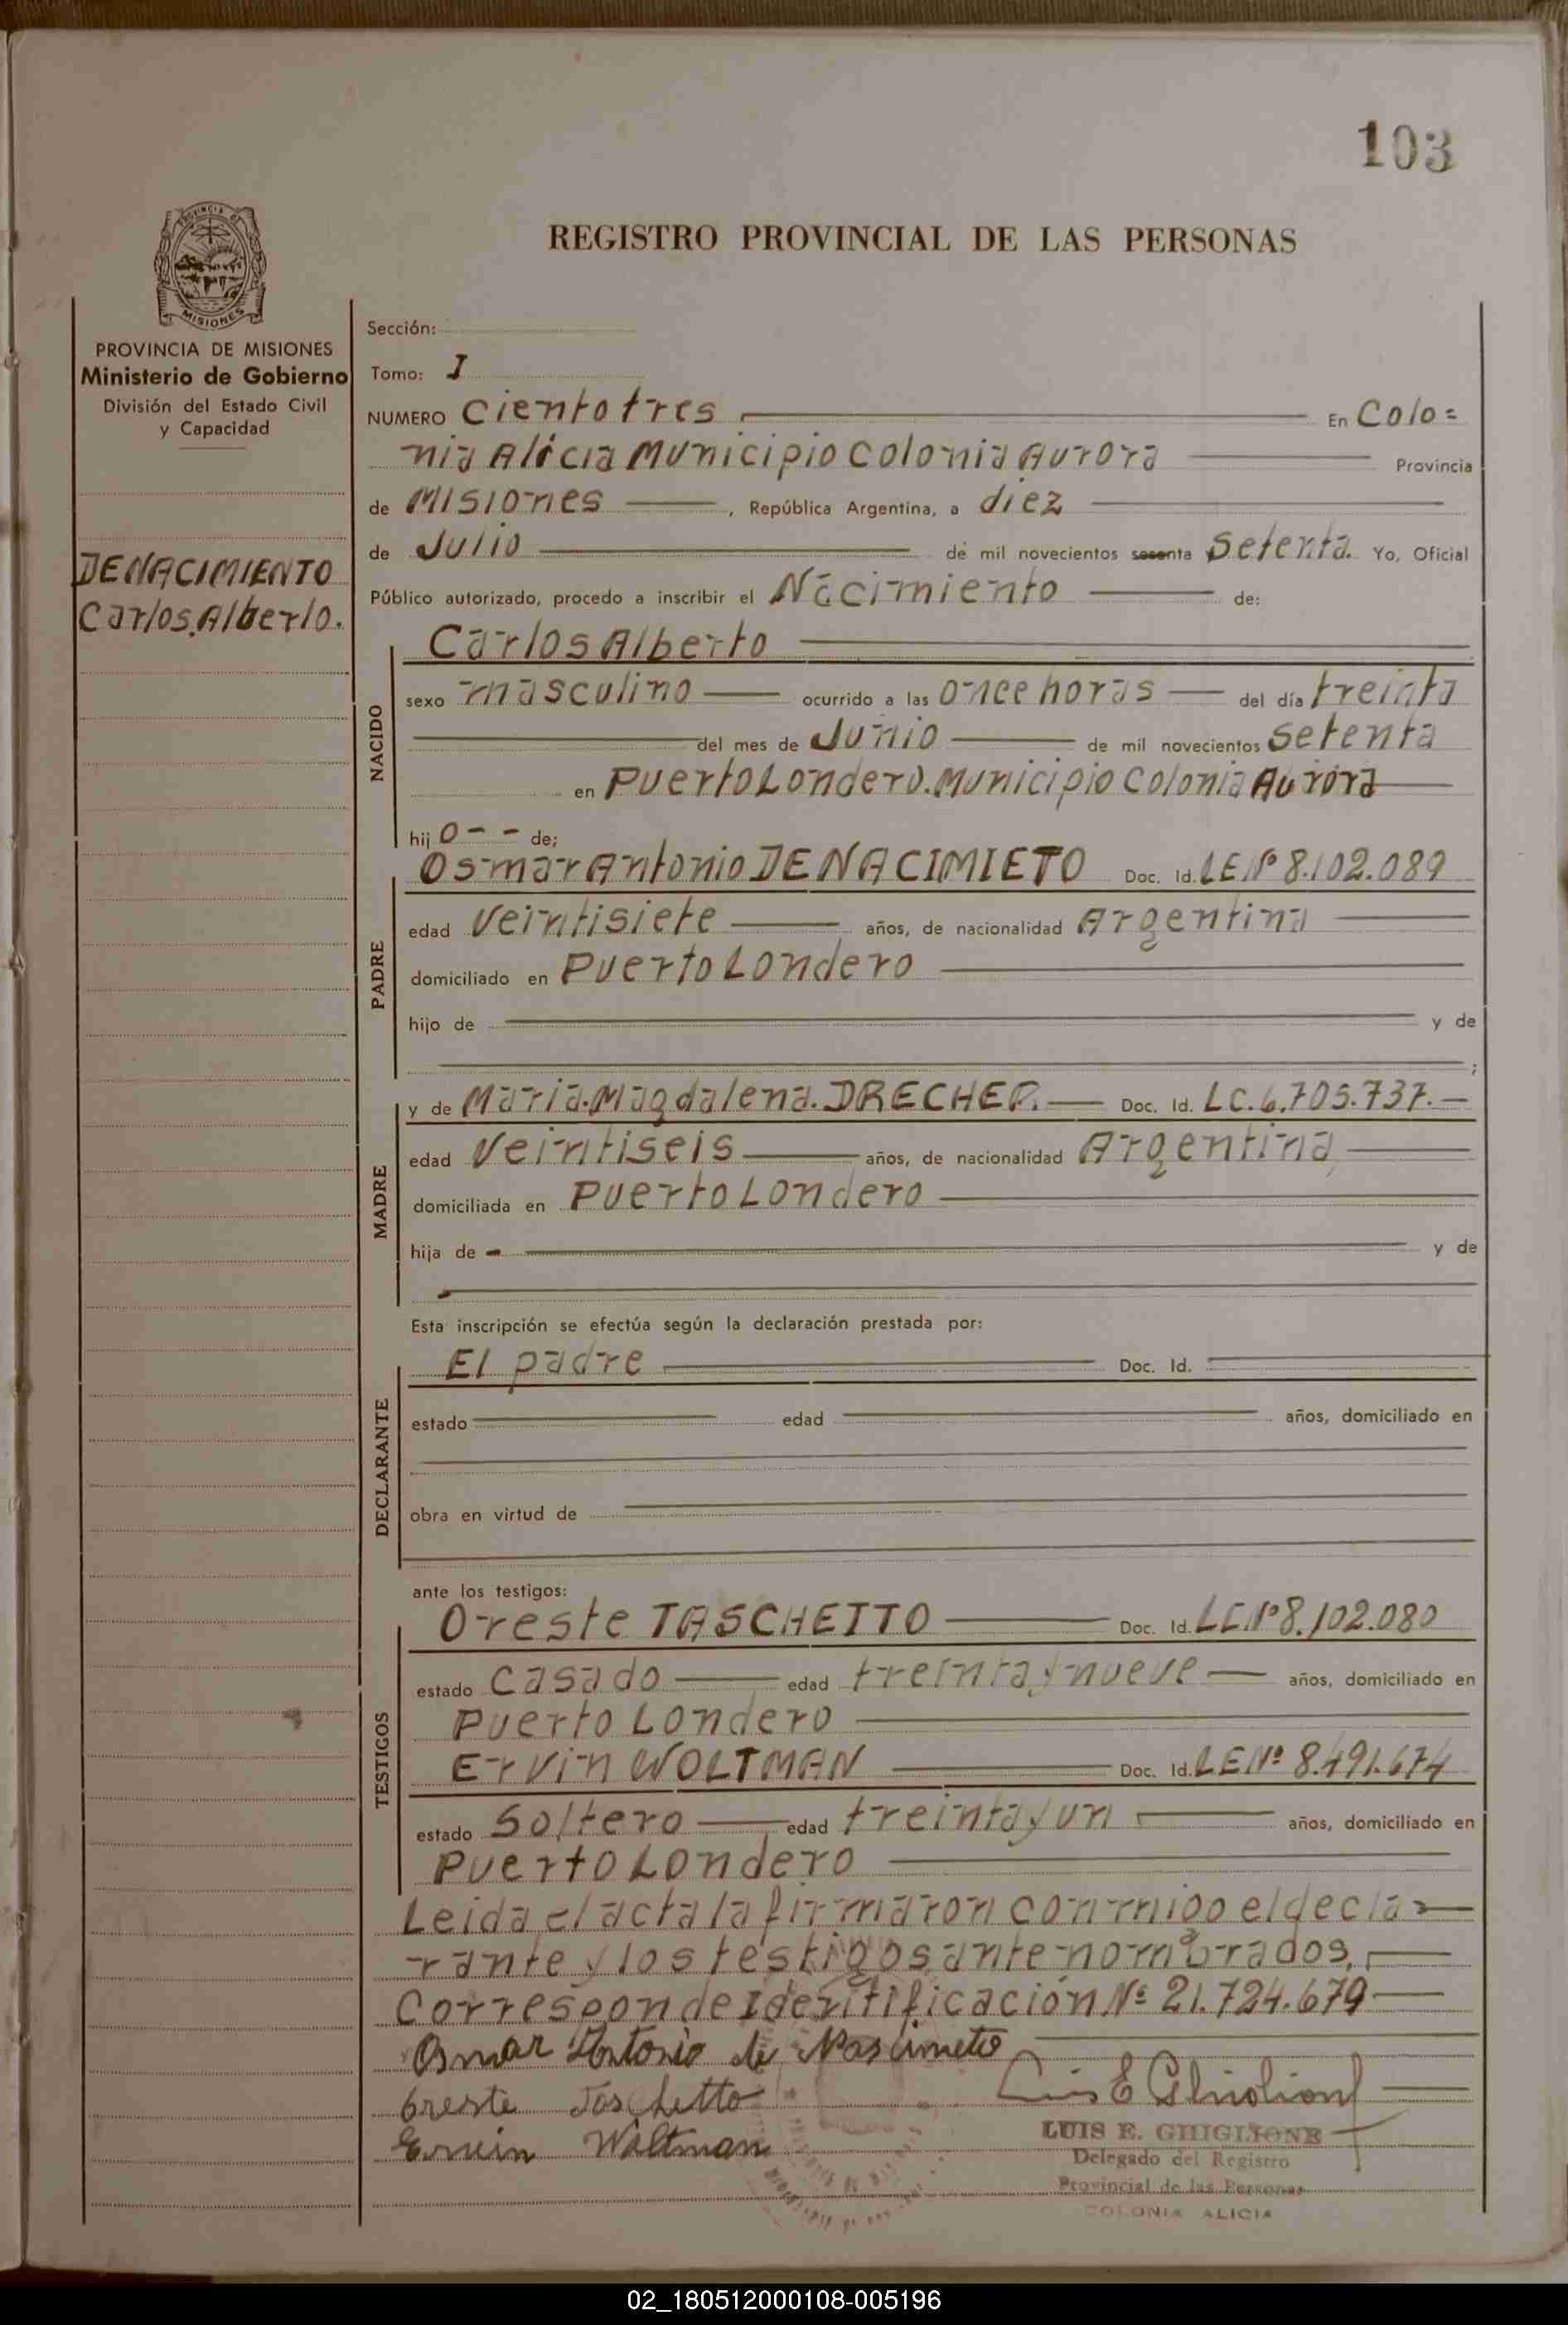 103
REGISTRO PROVINCIAL DE LAS PERSONAS
MISIONES
PROVINCIA DE MISIONES
Ministerio de Gobierno
División del Estado Civil
y Capacidad
DENACIMIENTO
Carlos Alberto.
Sección:
Tomo: I
NUMERO Ciento tres En Colo=
nia Alicia Municipio Colonia Aurora Provincia
de Misiones , República Argentina, a diez
de Julio de mil novecientos sesenta Setenta. Yo, Oficial
Público autorizado, procedo a inscribir el Nacimiento de:
NACIDO
Carlos Alberto
sexo masculino ocurrido a las once horas del día treinta
del mes de Junio de mil novecientos setenta
en Puerto Londero. Municipio Colonia Aurora
hij o - - de;
PADRE
Osmar Antonio DENACIMIETO Doc. Id. LE Nº 8.102.089
edad veintisiete años, de nacionalidad Argentina
domiciliado en Puerto Londero
hijo de y de
;
MADRE
y de Maria. Magdalena. DRECHER. Doc. Id. LC. 6.705.737.
edad veintiseis años, de nacionalidad Argentina
domiciliada en Puerto Londero
hija de y de
Esta inscripción se efectúa según la declaración prestada por:
DECLARANTE
El padre Doc. Id.
estado edad años, domiciliado en
obra en virtud de
ante los testigos:
TESTIGOS
Oreste TASCHETTO Doc. Id. LE Nº 8.102.080
estado casado edad treinta y nueve años, domiciliado en
Puerto Londero
Ervin WOLTMAN Doc. Id. LE Nº 8.491.674
estado soltero edad treinta y un años, domiciliado en
Puerto Londero
Leida el acta la firmaron conmigo el decla=
rante y los testigos ante nombrados,
Corresponde Identificación Nº 21.724.679
Osmar Antonio de Nascimeto
Oreste Taschetto
Ervin Woltman
Luis E Ghiglione
LUIS E. GHIGLIONE
Delegado del Registro
Provincial de las Personas
COLONIA ALICIA
02_180512000108-005196